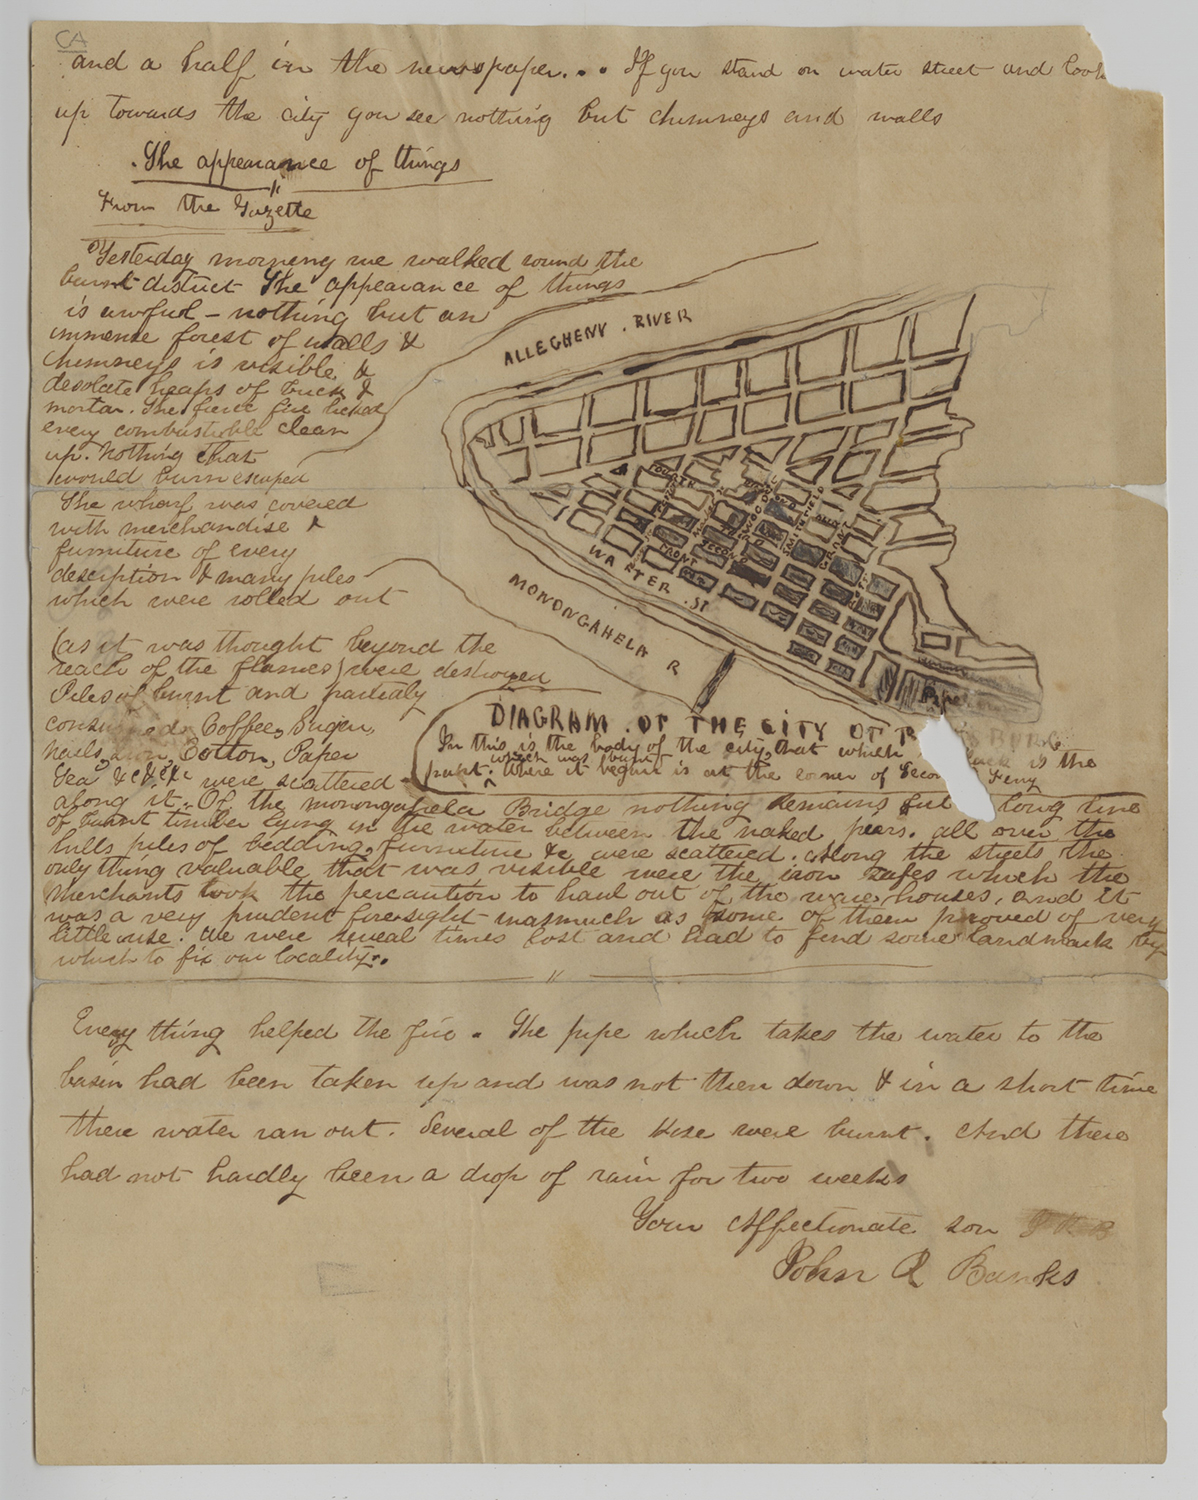 CA
and a half in the newspaper... If you stand on water street and look
up towards the city you see nothing but chimneys and walls
The appearance of things
From the Gazette
Yesterday morning we walked round the
burnt district The appearance of things
is awful – nothing but an
immense forest of walls &
chimneys is visible &
desolate heaps of brick &
mortar. The fierce fire licked
every combustible clean
up. Nothing that
would burn escaped
The wharf was covered
with merchandise &
furniture of every
description & many piles
which were rolled out
(as it was thought beyond the
reach of the flames) were destroyed
Piles of burnt and partialy
consumed Coffee, Sugar,
nails, iron, Cotton, Paper
Tea &c &c &c were scattered
along it. Of the monongahela Bridge nothing remains but long line
of burnt timber lying in the water between the naked piers. all over the
hills piles of bedding, furniture &c were scattered. Along the streets the
only thing valuable that was visible were the iron safes which the
Merchants took the percaution to haul out of the ware houses, and it
was a very prudent foresight inasmuch as some of them proved of very
little use. We were several times lost and had to find some landmark by
which to fix our locality.
ALLEGHENY RIVER
FOURTH
WOOD
SMITHFIELD
SECOND
FRONT
WARTER ST
MONONGAHELA R
DIAGRAM OF THE CITY OF P BURG
In this is the body of the city, that which black is the
which was burnt
part. Where it begun is at the corner of Second Ferry
Every thing helped the fire. The pipe which takes the water to the
basin had been taken up and was not then down & in a short time
there water ran out. Several of the Hose were burnt. And there
had not hardly been a drop of rain for two weeks
Your Affectionate son J R B
John R Banks